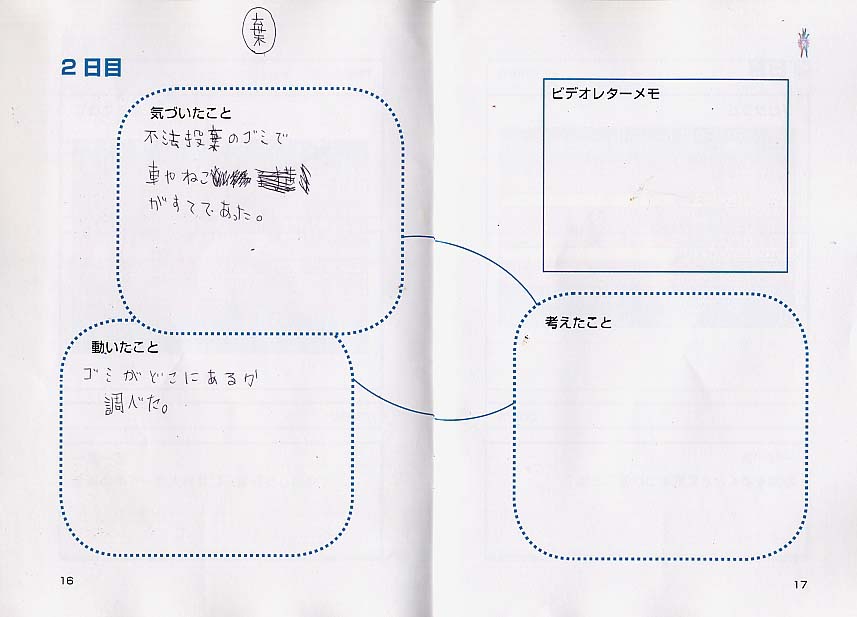 棄
2日目
気づいたこと
不法投棄のゴミで
車やねこ
がすててあった。
動いたこと
ゴミがどこにあるか
調べた。
16
ビデオレターメモ
考えたこと
17